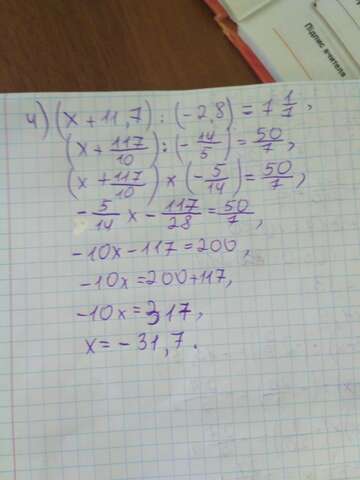 Підпис вчителя
4) (x + 11,7) : (-2,8) = 7 1/7,
(x + 117/10) : (- 14/5) = 50/7,
(x + 117/10) × (- 5/14) = 50/7,
- 5/14 x - 117/28 = 50/7,
-10x - 117 = 200,
-10x = 200 + 117,
-10x = 317,
x = - 31,7.